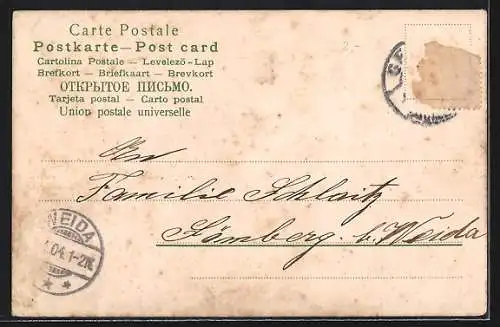 Carte Postale
Postkarte – Post card
Cartolina Postale – Levelező-Lap
Brefkort – Briefkaart – Brevkort
ОТКРЫТОЕ ПИСЬМО.
Tarjeta postal – Carto postal
Union postale universelle
2.-
An
Familie Schlaitz
b. Weida
WEIDA
04. 1-2N.